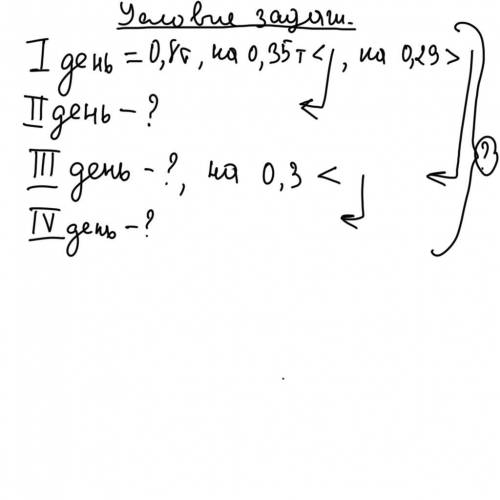 Условие задачи.
I день = 0,8т, на 0,35т <, на 0,29 >
II день - ?
III день - ?, на 0,3 <
IV день - ?
?